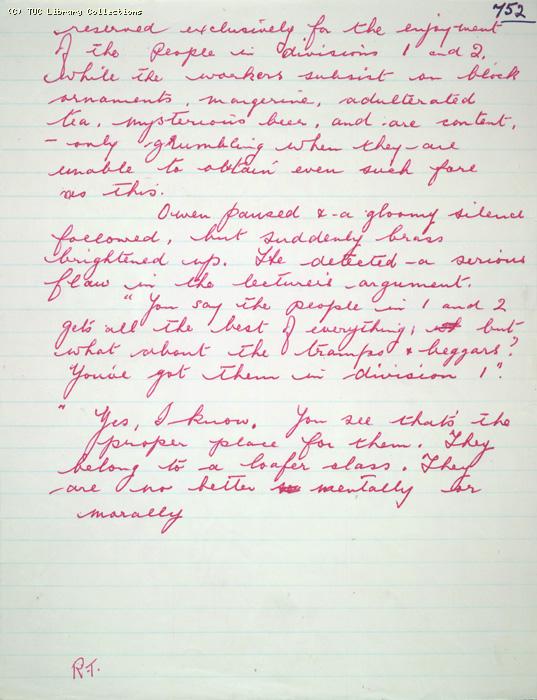 (C) TUC Library Collections
752
reserved exclusively for the enjoyment
of the people in divisions 1 and 2,
while the workers subsist on block
ornaments, margerine, adulterated
tea, mysterious beer, and are content,
- only grumbling when they are
unable to obtain even such fare
as this.
Owen paused & a gloomy silence
followed, but suddenly brass
brightened up. He detected a serious
flaw in the lecturer's argument.
"You say the people in 1 and 2
gets all the best of everything, but
what about the tramps & beggars?
You've got them in division 1".
"Yes, I know. You see that's the
proper place for them. They
belong to a loafer class. They
are no better mentally or
morally
R.T.